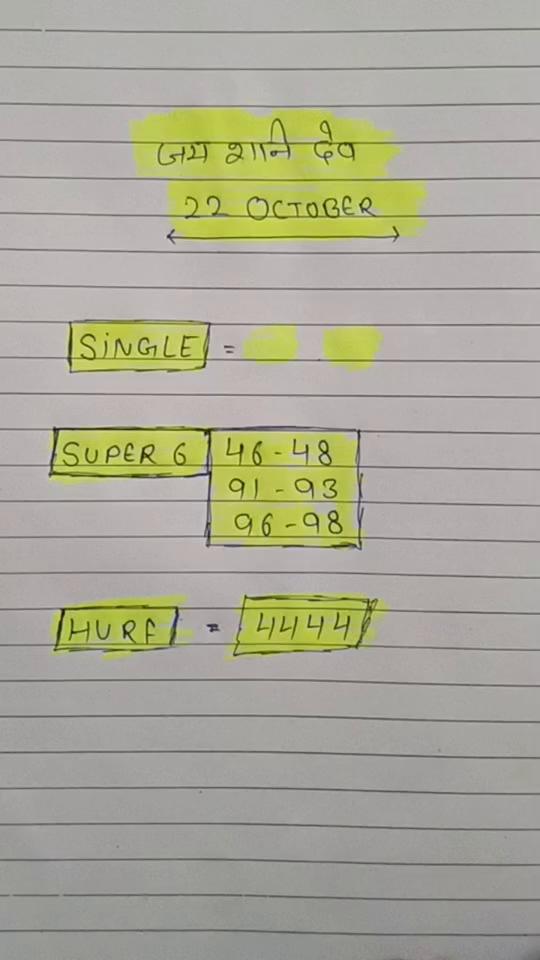 जय शनि देव
22 OCTOBER
SiNGLE =
SUPER 6 46-48
91-93
96-98
HURF = 4444